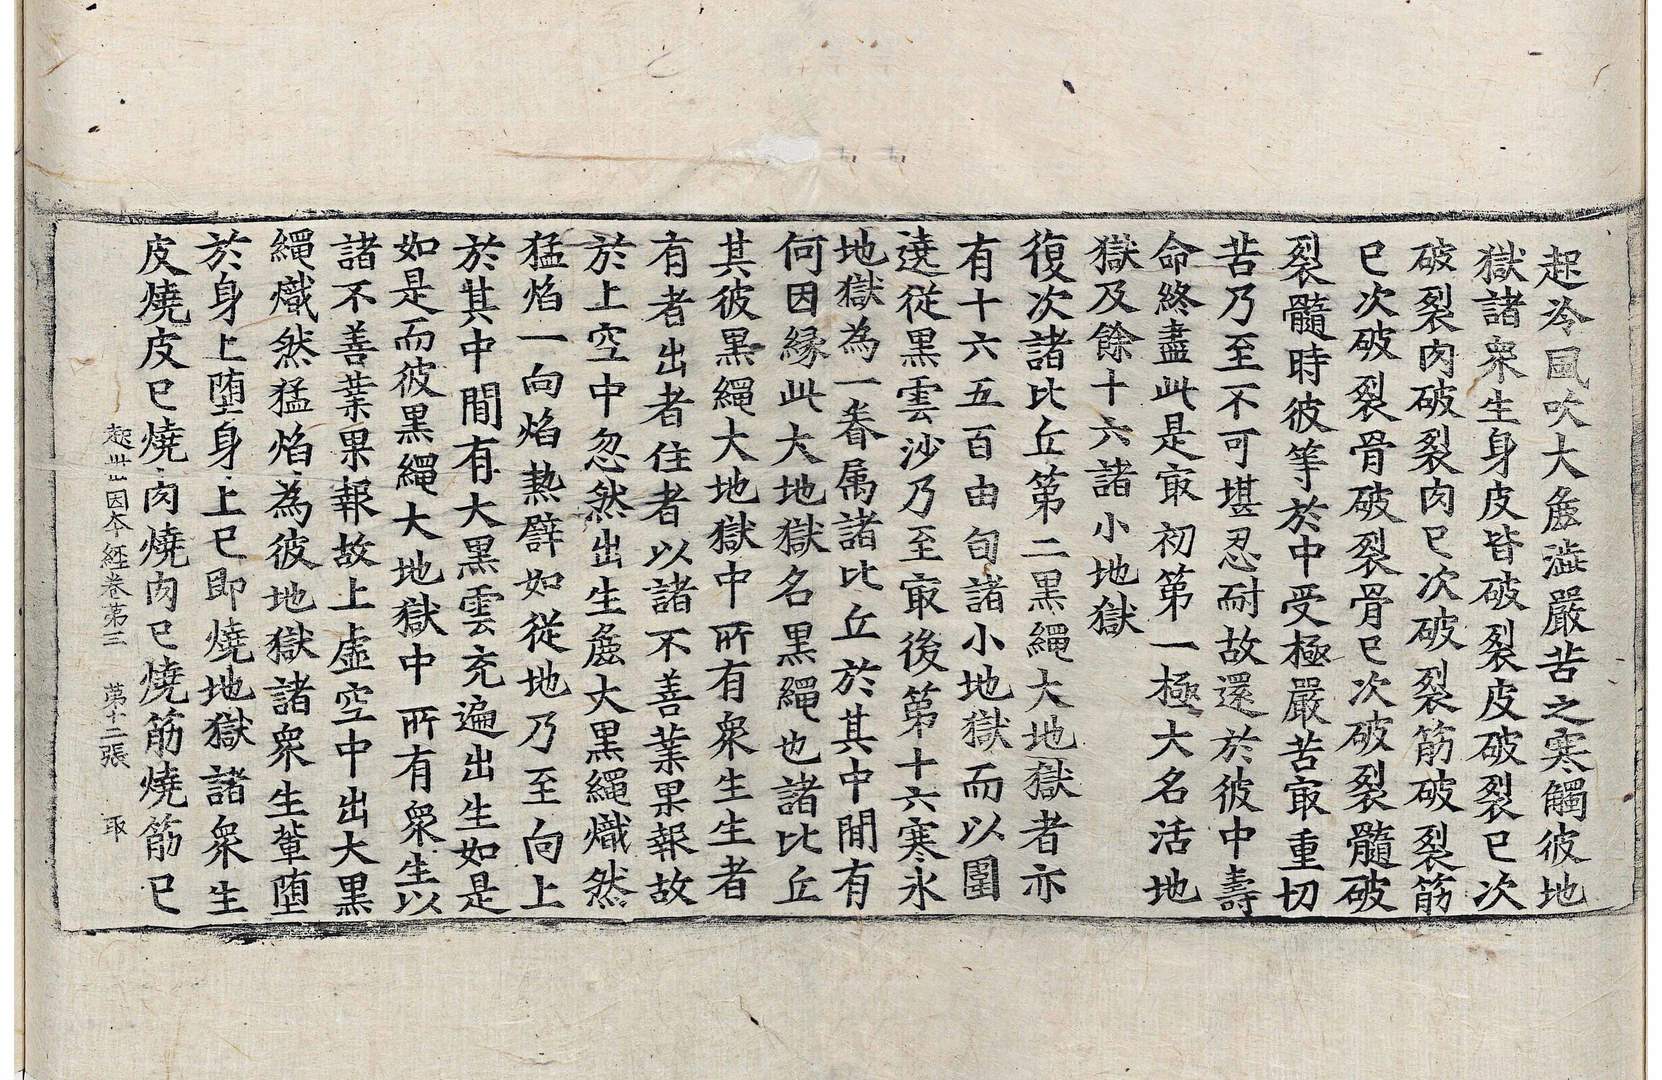 起冷風吹大麁澁嚴苦之寒觸彼地
獄諸衆生身皮皆破裂皮破裂已次
破裂肉破裂肉已次破裂筋破裂筋
已次破裂骨破裂骨已次破裂髓破
裂髓時彼等於中受極嚴苦㝡重切
苦乃至不可堪忍耐故還於彼中壽
命終盡此是㝡初第一極大名活地
獄及餘十六諸小地獄
復次諸比丘第二黑繩大地獄者亦
有十六五百由旬諸小地獄而以圍
遶從黑雲沙乃至㝡後第十六寒氷
地獄為一眷属諸比丘於其中閒有
何因縁此大地獄名黑繩也諸比丘
其彼黑繩大地獄中所有衆生生者
有者出者住者以諸不善業果報故
於上空中忽然出生麁大黑繩熾然
猛焰一向焰熱譬如從地乃至向上
於其中閒有大黑雲充遍出生如是
如是而彼黑繩大地獄中所有衆生以
諸不善業果報故上虛空中出大黑
繩熾然猛焰為彼地獄諸衆生輩墮
於身上墮身上已即燒地獄諸衆生
皮燒皮已燒肉燒肉已燒筋燒筋已
起世因本經卷第三 第十二張 取